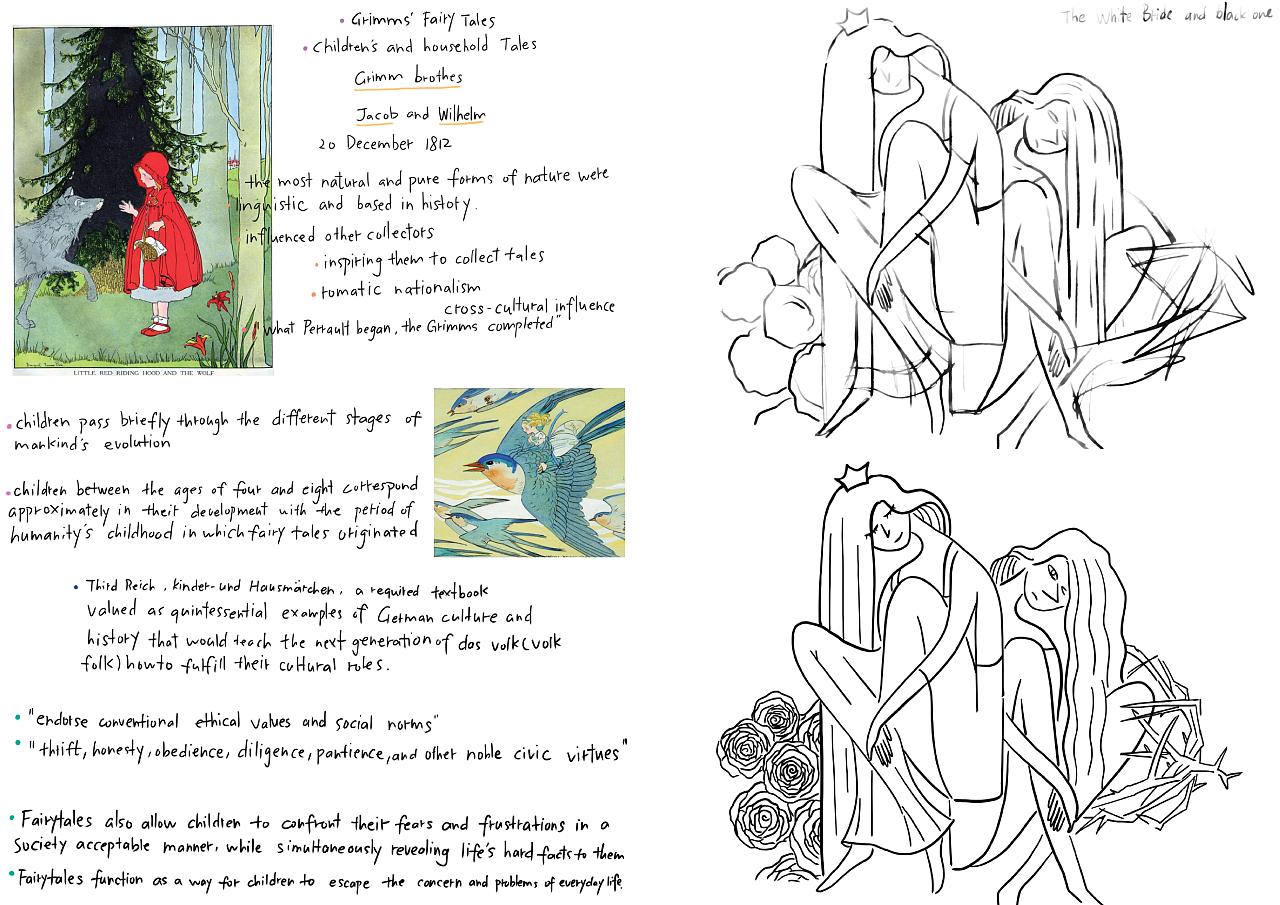 Grimms' Fairy Tales
Children's and household Tales
Grimm brothes
Jacob and Wilhelm
20 December 1812
the most natural and pure forms of nature were
linguistic and based in history.
influenced other collectors
inspiring them to collect tales
romatic nationalism
cross-cultural influence
"what Perrault began, the Grimms completed"
LITTLE RED RIDING HOOD AND THE WOLF
children pass briefly through the different stages of
mankind's evolution
children between the ages of four and eight correspund
approximately in their development with the period of
humanity's childhood in which fairy tales originated
Third Reich, kinder-und Hausmärchen, a required textbook
valued as quintessential examples of German culture and
history that would teach the next generation of das volk (volk
folk) how to fulfill their cultural roles.
"endorse conventional ethical values and social norms"
"thrift, honesty, obedience, diligence, pantience, and other noble civic virtues"
Fairytales also allow children to confront their fears and frustrations in a
Society acceptable manner, while simultaneously revealing life's hard facts to them
Fairytales function as a way for children to escape the concern and problems of everyday life.
The White Bride and black one